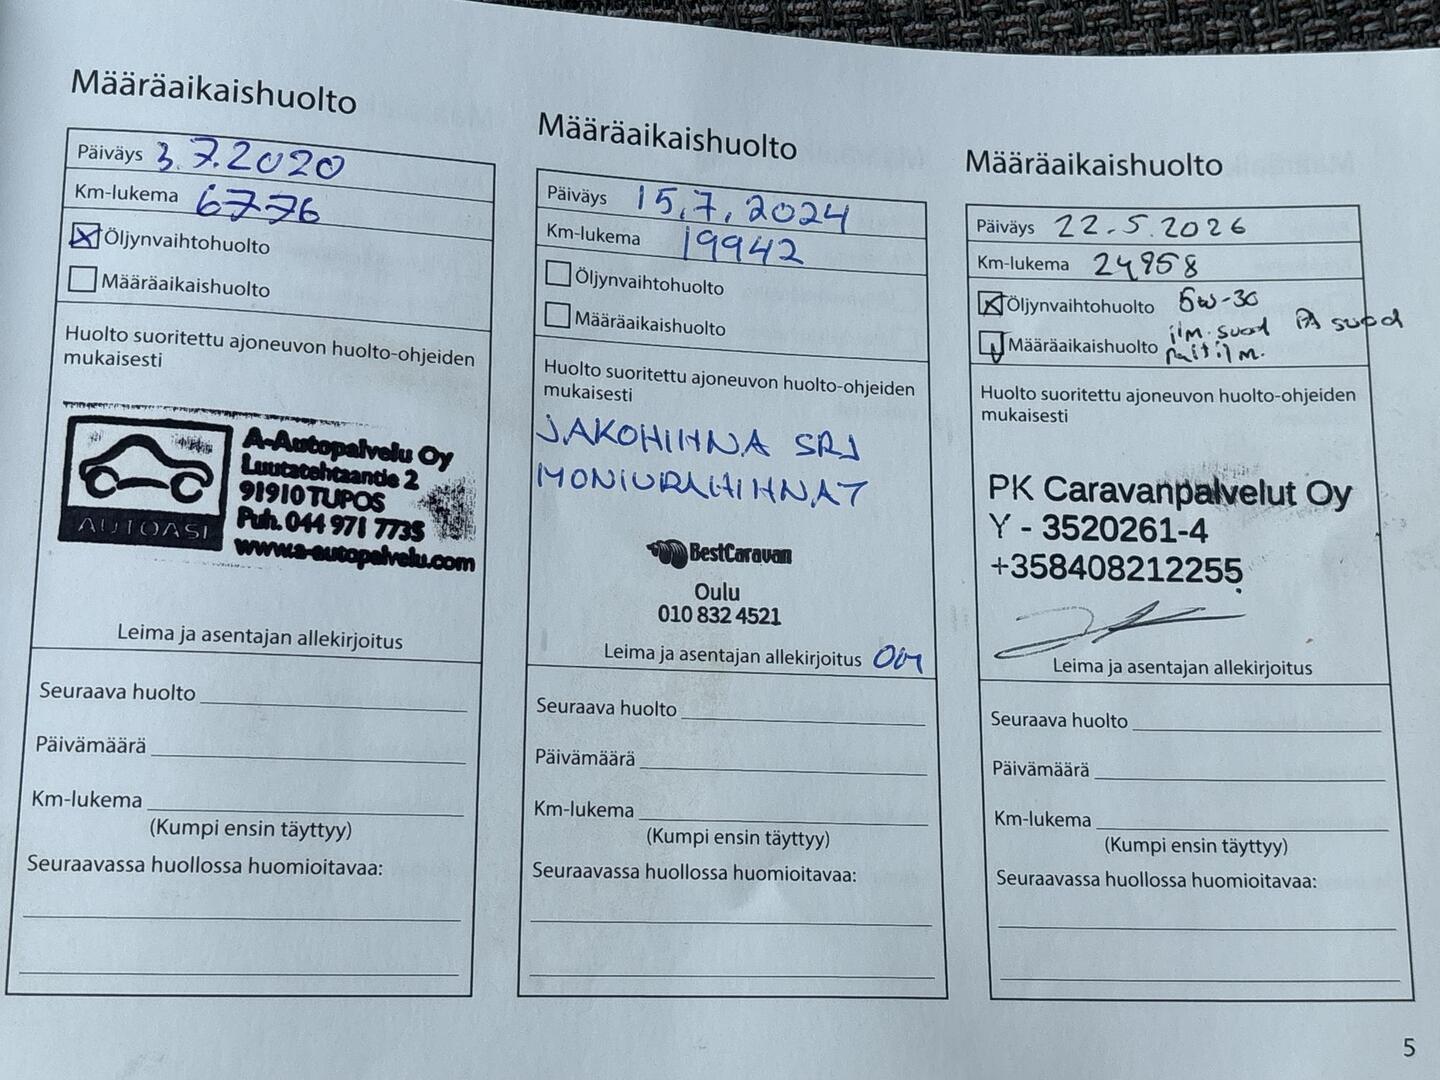 Määräaikaishuolto
Päiväys 3.7.2020
Km-lukema 6776
Öljynvaihtohuolto
Määräaikaishuolto
Huolto suoritettu ajoneuvon huolto-ohjeiden
mukaisesti
AUTOASI
A-Autopalvelu Oy
Luutatehtaantie 2
91910 TUPOS
Puh. 044 971 7735
www.a-autopalvelu.com
Leima ja asentajan allekirjoitus
Seuraava huolto
Päivämäärä
Km-lukema
(Kumpi ensin täyttyy)
Seuraavassa huollossa huomioitavaa:
Määräaikaishuolto
Päiväys 15.7.2024
Km-lukema 19942
Öljynvaihtohuolto
Määräaikaishuolto
Huolto suoritettu ajoneuvon huolto-ohjeiden
mukaisesti
JAKOHIHNA SRJ
MONIURAHIHNAT
BestCaravan
Oulu
010 832 4521
Leima ja asentajan allekirjoitus
Seuraava huolto
Päivämäärä
Km-lukema
(Kumpi ensin täyttyy)
Seuraavassa huollossa huomioitavaa:
Määräaikaishuolto
Päiväys 22.5.2026
Km-lukema 24958
Öljynvaihtohuolto 5w-30
Määräaikaishuolto ilm. suod PA suod
Huolto suoritettu ajoneuvon huolto-ohjeiden
mukaisesti
PK Caravanpalvelut Oy
Y - 3520261-4
+358408212255
Leima ja asentajan allekirjoitus
Seuraava huolto
Päivämäärä
Km-lukema
(Kumpi ensin täyttyy)
Seuraavassa huollossa huomioitavaa:
5